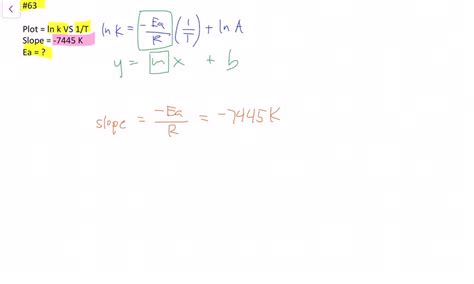 #63
Plot = ln k VS 1/T
Slope = -7445 K
Ea = ?
ln K = -Ea/R (1/T) + ln A
y = m x + b
slope = -Ea/R = -7445 K